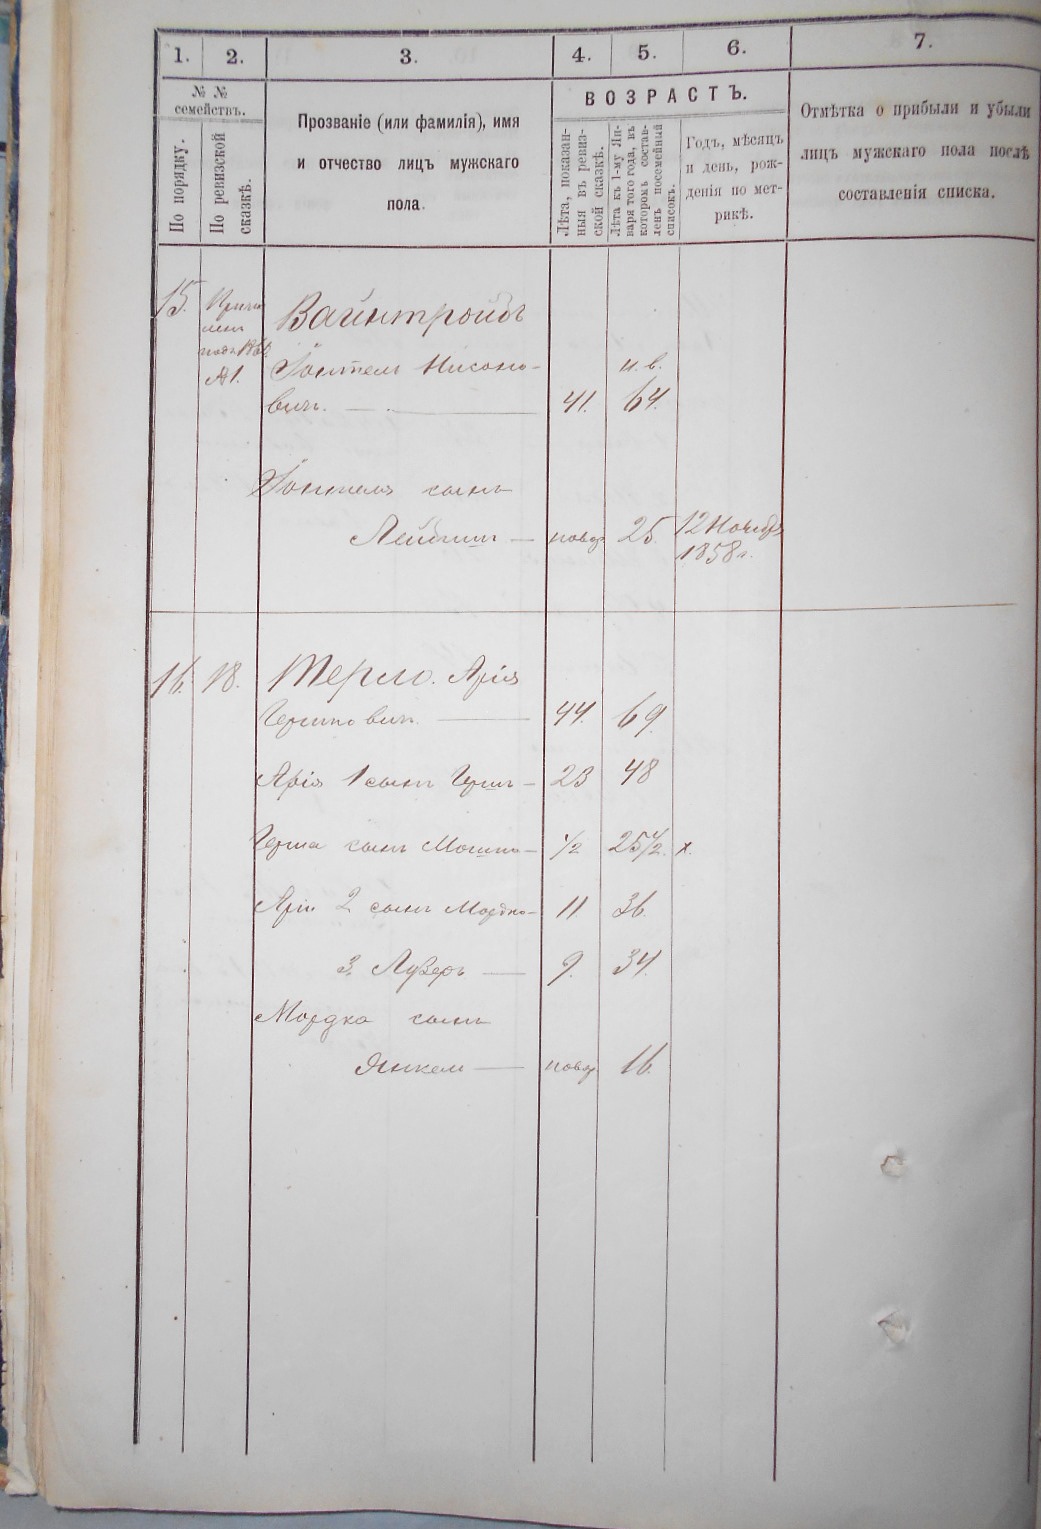 1. 2. 3. 4. 5. 6. 7.
№ №
семействъ.
По порядку.
По ревизской
сказкѣ.
Прозваніе (или фамилія), имя
и отчество лицъ мужскаго
пола.
ВОЗРАСТЪ.
Лѣта, показан-
ныя въ ревиз-
ской сказкѣ.
Лѣта къ 1-му Ян-
варя того года, въ
которомъ состав-
ленъ посемейный
списокъ.
Годъ, мѣсяцъ
и день, рож-
денія по мет-
рикѣ.
Отмѣтка о прибыли и убыли
лицъ мужскаго пола послѣ
составленія списка.
15. Вайнтройбъ
Нисоно- н. в.
вичъ. 41. 64.
сынъ
Лейбишъ — новор 25. 12 Ноября
1858 г.
16. 18. Терло. Арія
Гершковичъ. 44. 69.
Арія 1 сынъ Герш- 23 48
Герша сынъ Мошко- 1/2 25 1/2. х.
Арія 2 сынъ Мордко- 11 36.
3. Лузеръ — 9. 34.
Мордко сынъ
Янкель — новор 16.